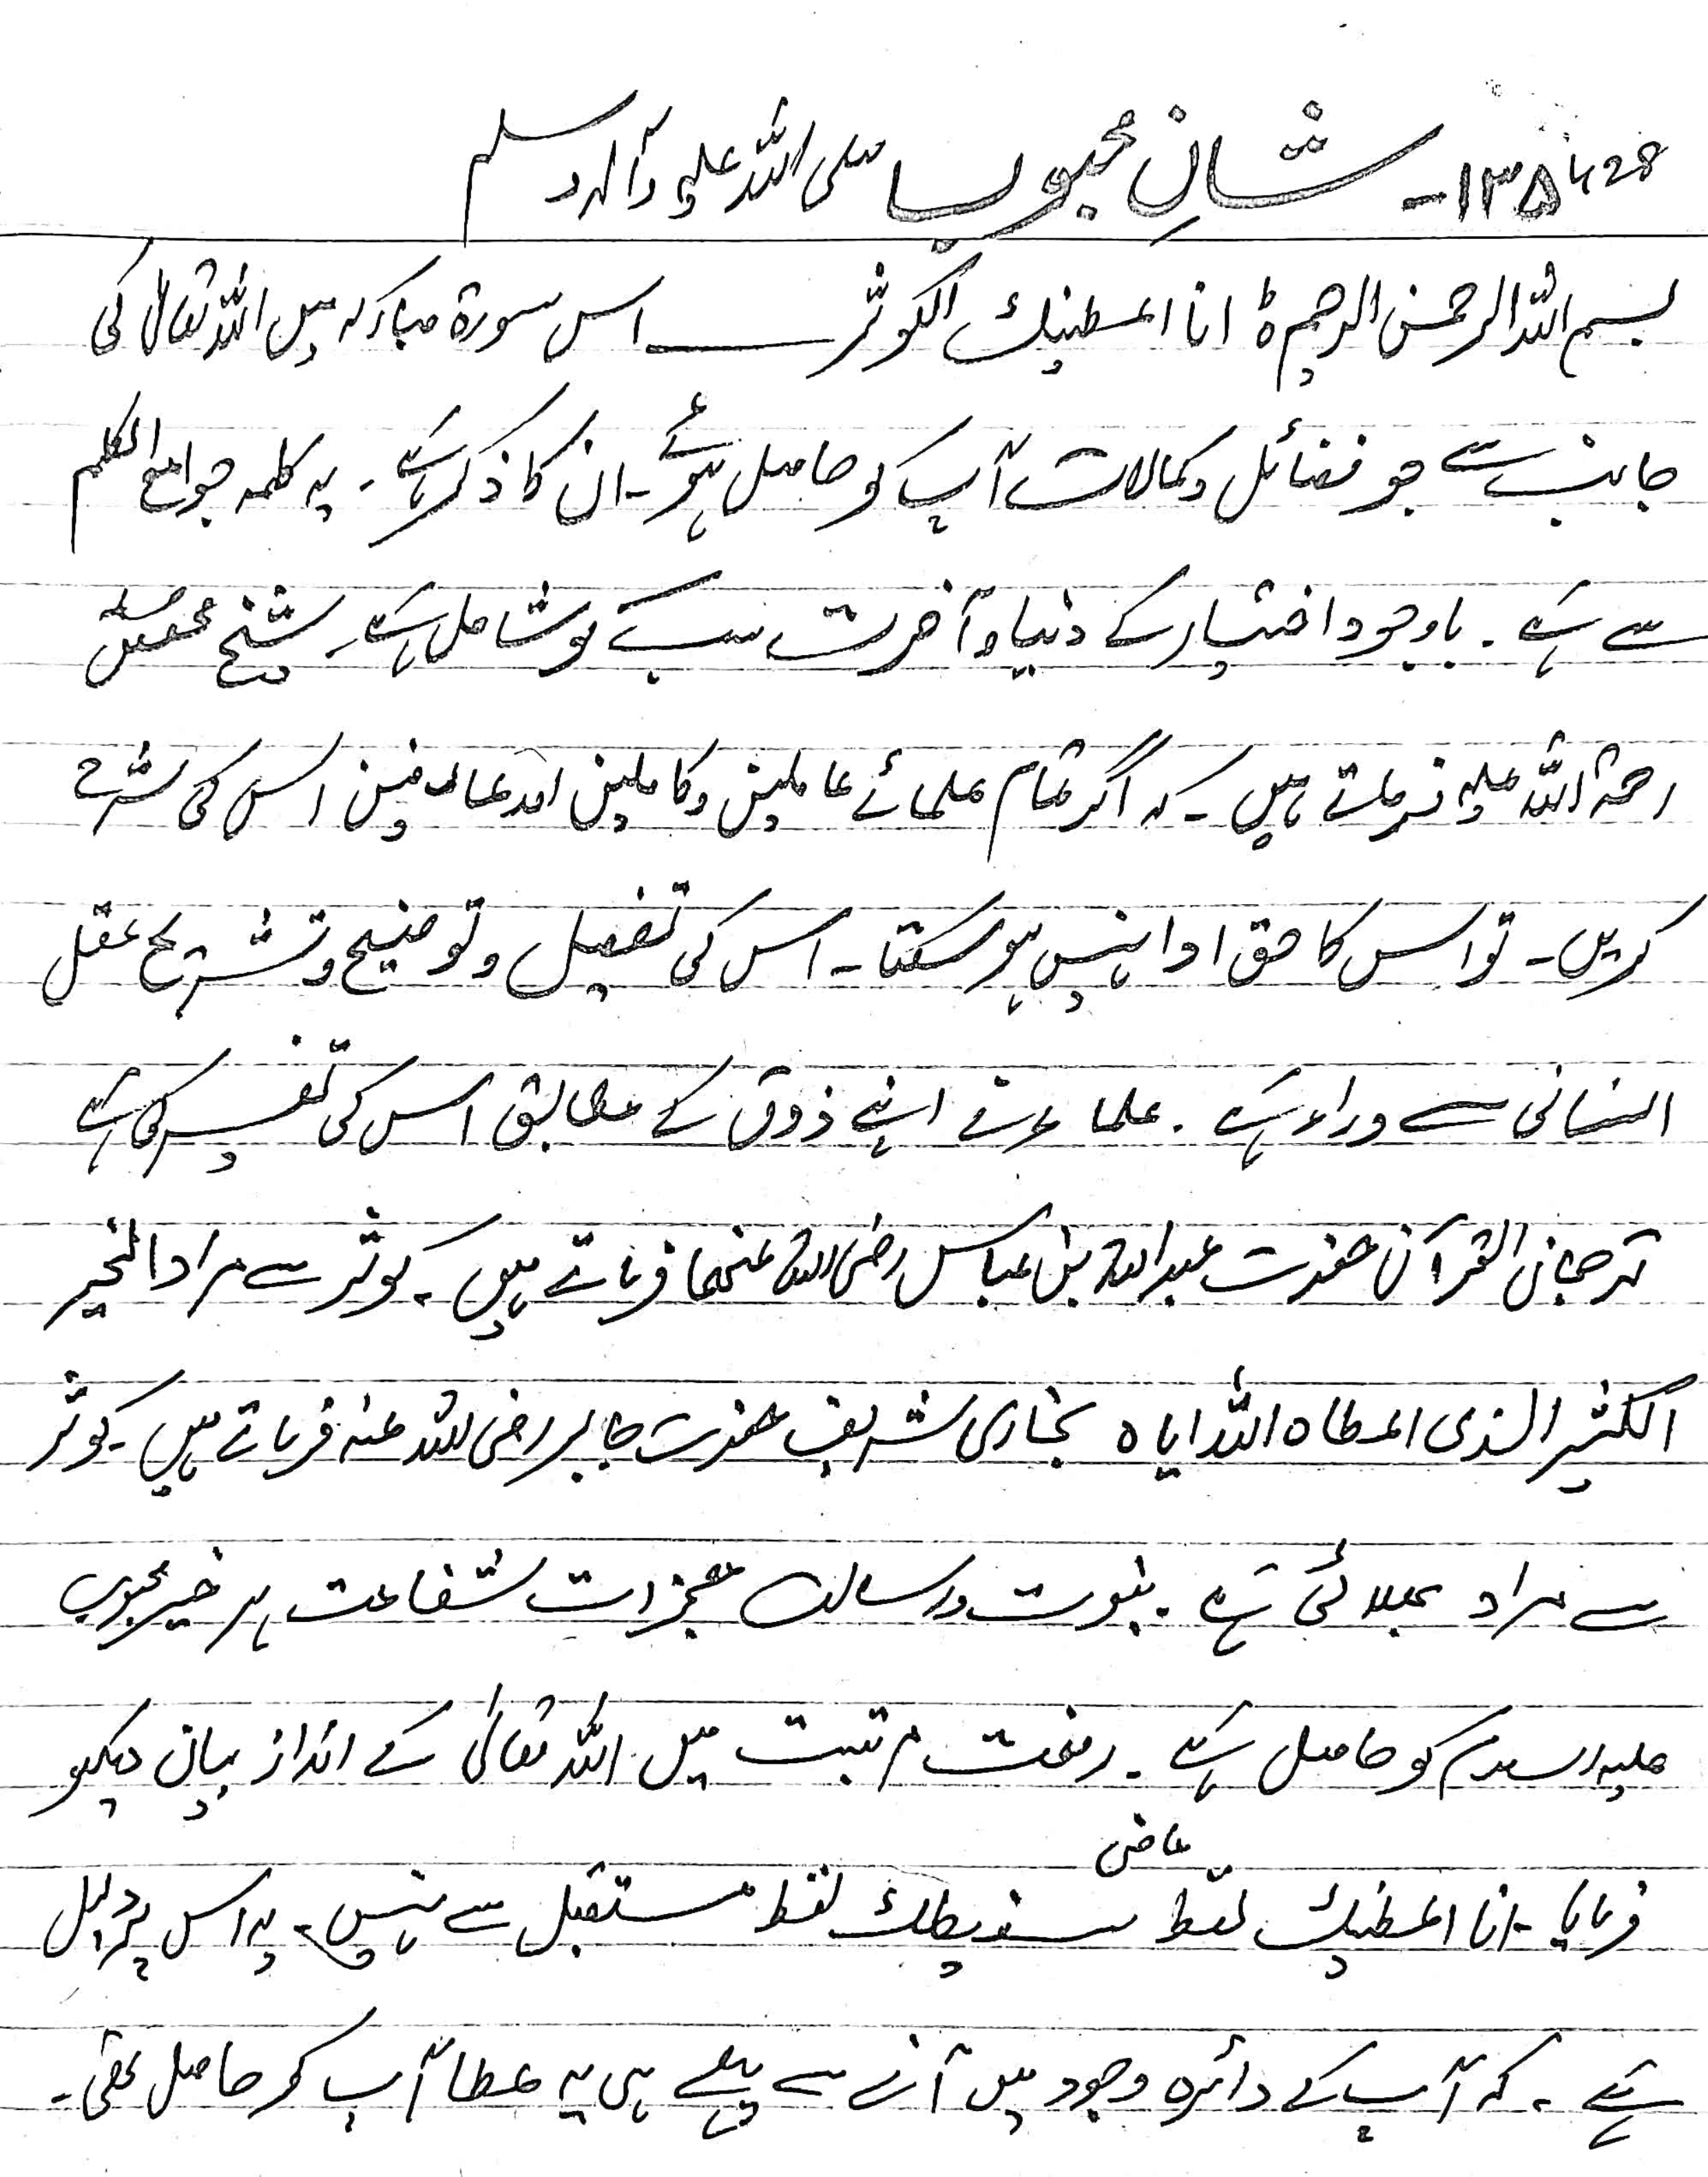 428 ۱۳۵- شانِ محبوب صلی اللہ علیہ وآلہ وسلم
بسم اللہ الرحمن الرحیم ٥ انا اعطینٰک الکوثر ـــــ اس سورۃ مبارکہ میں اللہ تعالیٰ کی
جانب سے جو فضائل وکمالات آپ کو حاصل ہوئے۔ ان کا ذکر ہے۔ یہ کلمہ جوامع الکلم
سے ہے۔ باوجود اختیار کے دنیا وآخرت سب کو شامل ہے۔ شیخ محقق
رحمۃ اللہ علیہ فرماتے ہیں۔ کہ اگر تمام علمائے عاملین وکاملین اور عارفین اس کی شرح
کریں۔ تو اس کا حق ادا نہیں ہو سکتا۔ اس کی تفصیل و توضیح و تشریح عقل
انسانی سے وراء ہے۔ علماء نے اپنے ذوق کے مطابق اس کی تفسیر کی ہے
ترجمان القرآن حضرت عبداللہ بن عباس رضی اللہ عنہما فرماتے ہیں۔ کوثر سے مراد الخیر
الکثیر الذی اعطاہ اللہ ایاہ بخاری شریف حضرت جابر رضی اللہ عنہ فرماتے ہیں۔ کوثر
سے مراد بھلائی ہے۔ نبوت ورسالت معجزات شفاعت ہر خیر محبوب
علیہ السلام کو حاصل ہے۔ رفعت مرتبت میں اللہ تعالیٰ کے انداز بیان دیکھو
فرمایا۔ انا اعطینٰک لفظ ماضی سنعطیک لفظ مستقبل سے نہیں۔ یہ اس پر دلیل
ہے۔ کہ آپ کے دائرہ وجود میں آنے سے پہلے ہی یہ عطا آپ کو حاصل تھی۔